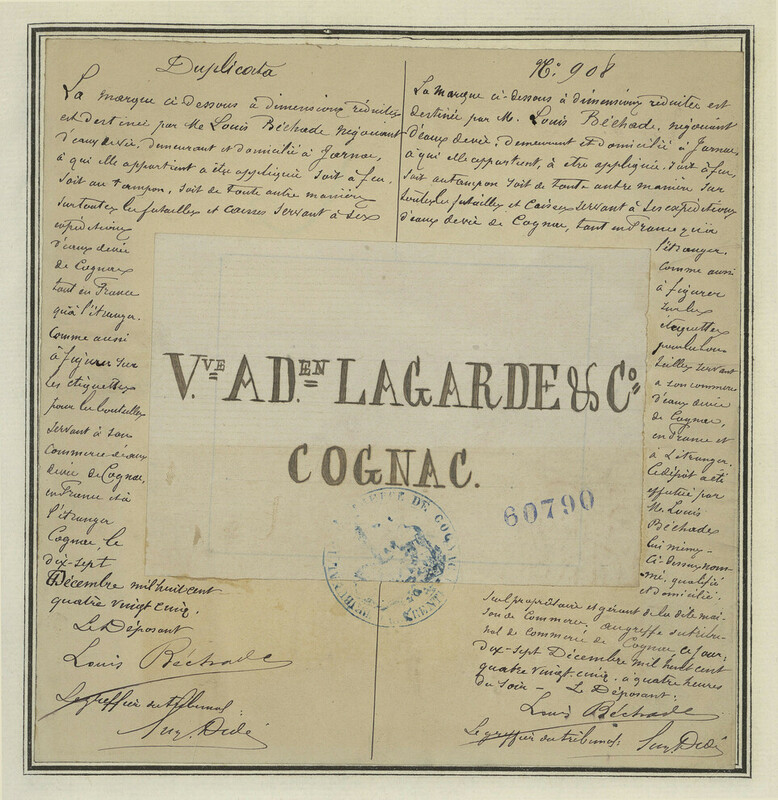 Duplicata
La marque ci-dessous à dimensions réduites
est destinée par Mr Louis Béchade négociant
d'eaux devie, demeurant et domicilié à Jarnac,
à qui elle appartient a être appliquée soit à feu,
soit au tampon, soit de toute autre manière
sur toutes les futailles et caisses servant à ses
expéditions
d'eaux devie
de Cognac
tant en France
qu'à l'étranger.
Comme aussi
à figurer sur
les étiquettes
pour les bouteilles
servant à son
commerce d'eaux
devie de Cognac,
en France et à
l'étranger
Cognac le
dix-sept
Décembre mil huit cent
quatre vingt cinq.
Le Déposant
Louis Béchade
Le greffier du tribunal:
No: 908
La marque ci-dessous à dimensions réduites est
destinée par M. Louis Béchade, négociant
d'eaux devie, demeurant et domicilié à Jarnac,
à qui elle appartient, à être appliquée soit à feu,
soit au tampon soit de toute autre manière sur
toutes les futailles et caisses servant à ses expéditions
d'eaux devie de Cognac, tant en France qu'à
l'étranger.
Comme aussi
à figurer
sur les
étiquettes
pour les bou-
teilles servant
à son commerce
d'eaux devie
de Cognac,
en France et
à l'étranger.
Le dépôt a été
effectué par
M. Louis
Béchade
lui même -
ci-dessus nom-
mé, qualifié
et domicilié.
seul propriétaire et gérant de la dite mai-
son de Commerce, au greffe du tribu-
nal de commerce de Cognac ce jour:
dix-sept Décembre mil huit cent
quatre vingt-cinq, à quatre heures
du soir - Le Déposant:
Louis Béchade
Le greffier du tribunal:
V.VE AD.EN LAGARDE & Co
COGNAC.
60790